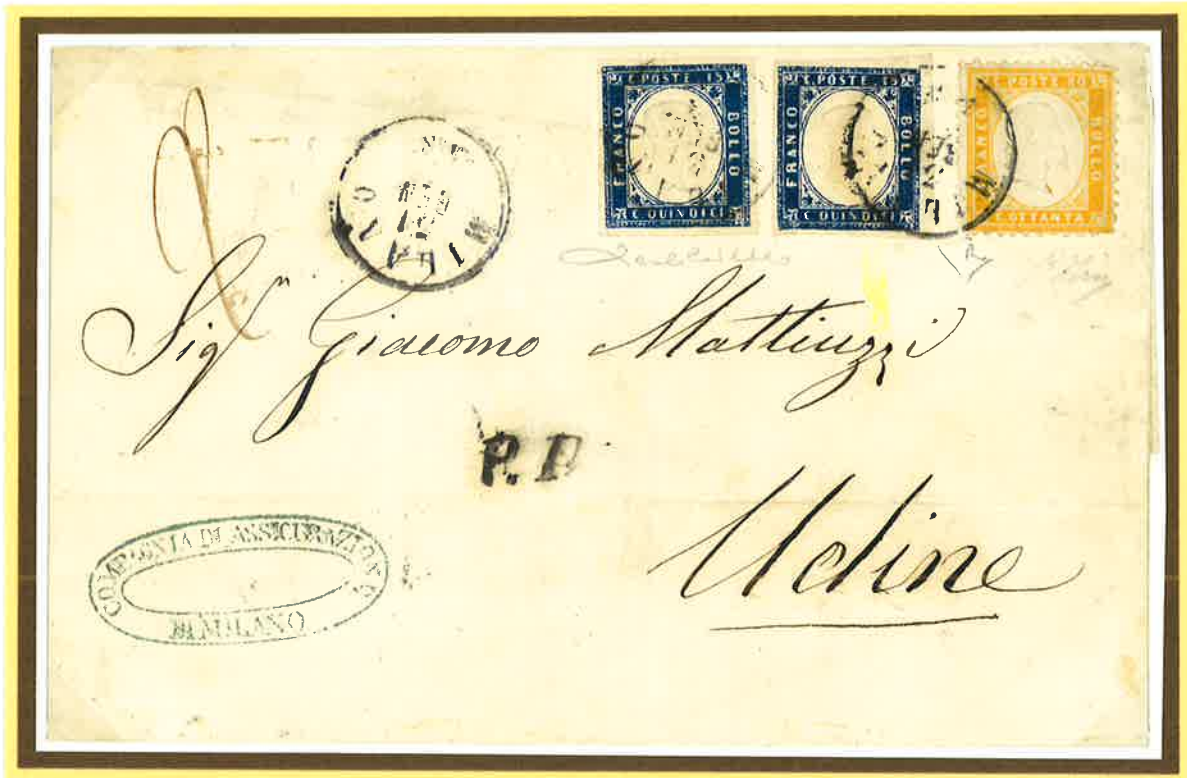 C. POSTE 15
FRANCO
BOLLO
C. QUINDICI
C. POSTE 15
FRANCO
BOLLO
C. QUINDICI
C. POSTE 80
FRANCO
BOLLO
C. OTTANTA
MILANO
Sigr Giacomo Mattiuzzi
P. P
Udine
COMPAGNIA DI ASSICURAZIONE
DI MILANO